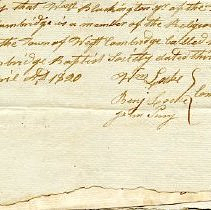 that West Blackington of the
Cambridge is a member of the Religious
the Town of West Cambridge called
bridge Baptist Society dated this
ril AD. 1820 Wm Locke
Benj Locke
John